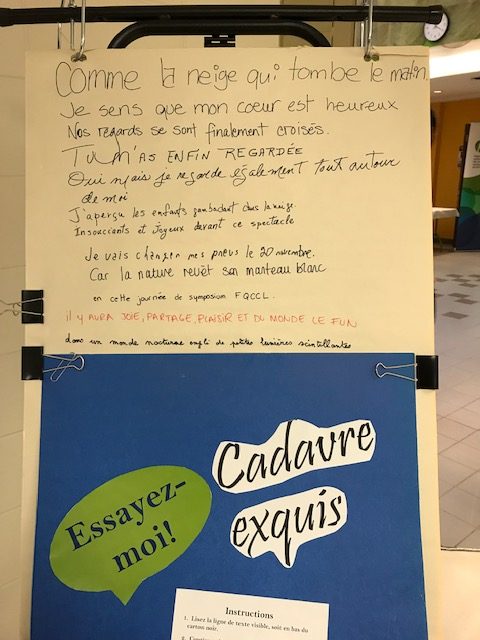 Comme la neige qui tombe le matin
Je sens que mon coeur est heureux
Nos regards se sont finalement croisés.
TU M'AS ENFIN REGARDÉE
Oui mais je regarde également tout autour
de moi
J'aperçu les enfants gambadant dans la neige.
Insouciants et joyeux devant ce spectacle
Je vais changer mes pneus le 20 novembre.
Car la nature revêt son manteau blanc
en cette journée de symposium FQCCL.
il y AURA JOIE, PARTAGE, PLAISIR ET DU MONDE LE FUN
dans un monde nocturne empli de petites lumières scintillantes
Cadavre
exquis
Essayez-
moi!
Instructions
1. Lisez la ligne de texte visible, soit en bas du
carton noir.